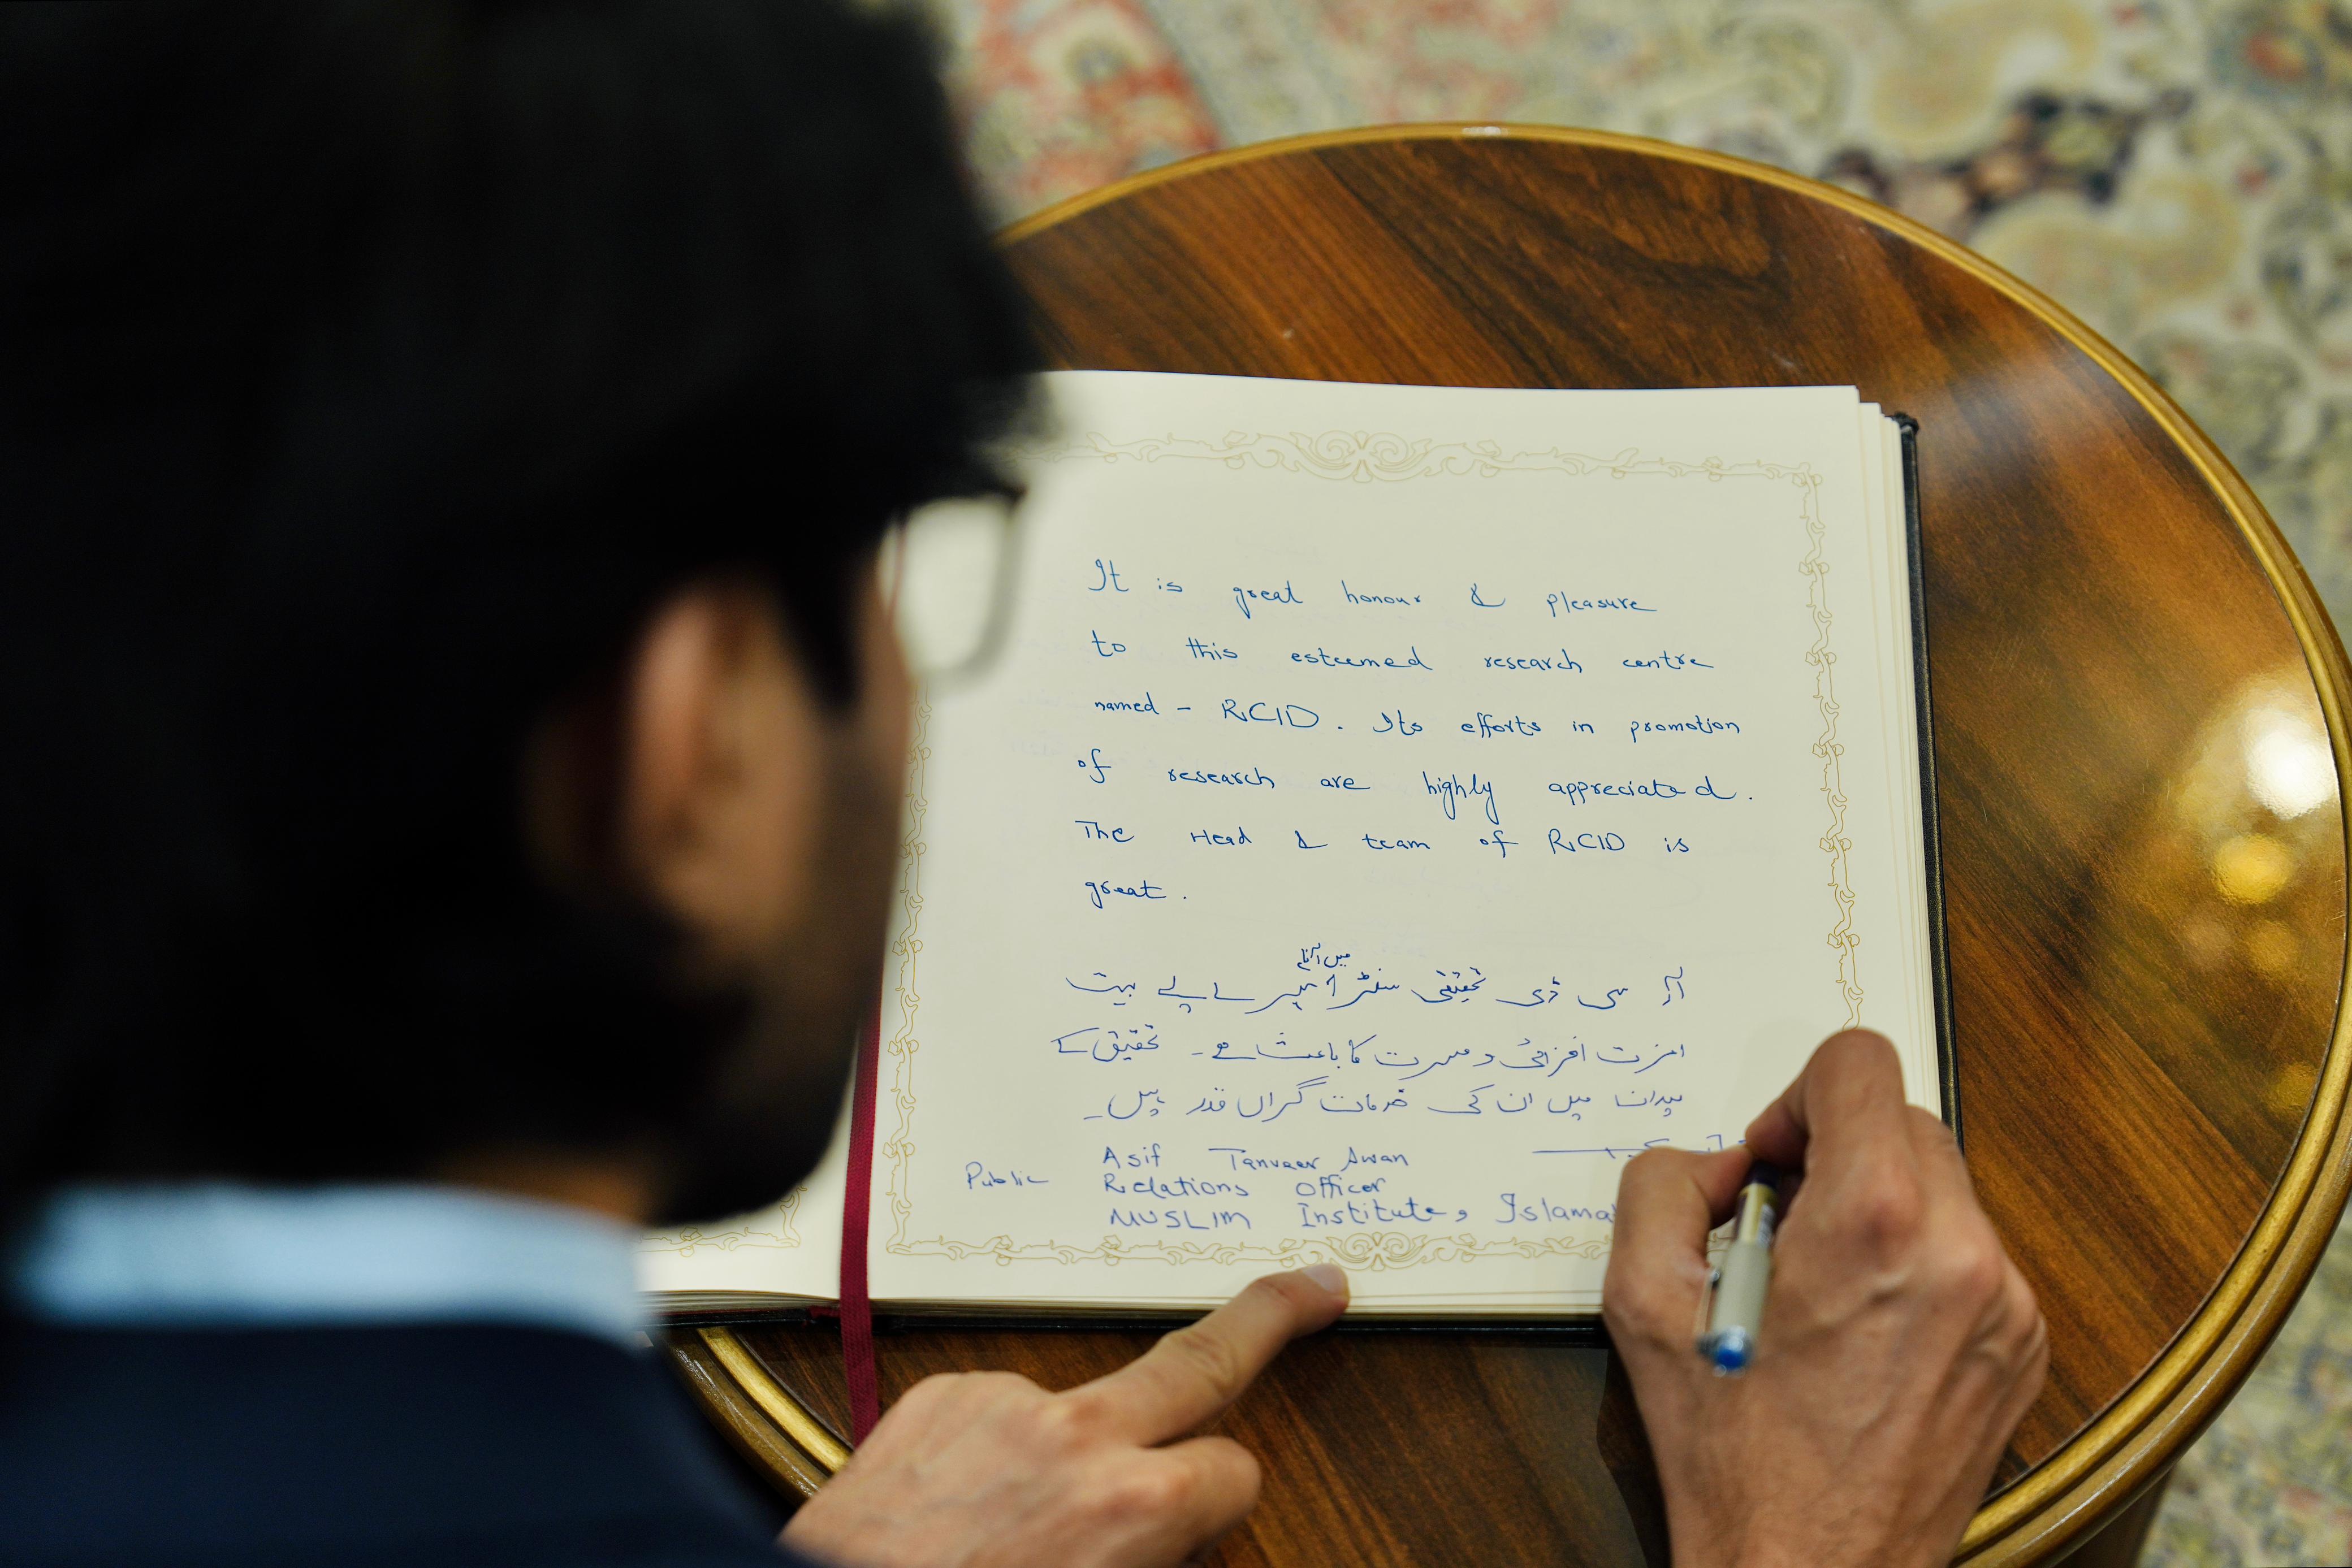 It is great honour & pleasure
to this esteemed research centre
named - RCID. Its efforts in promotion
of research are highly appreciated.
The Head & team of RCID is
great.
میں آنا
آر سی ڈی تحقیقی سنٹر میرے لیے بہت
عزت افزائی و مسرت کا باعث ہے۔ تحقیق کے
میدان میں ان کی خدمات گراں قدر ہیں۔
Asif Tanveer Awan
Public Relations Officer
MUSLIM Institute, Islama